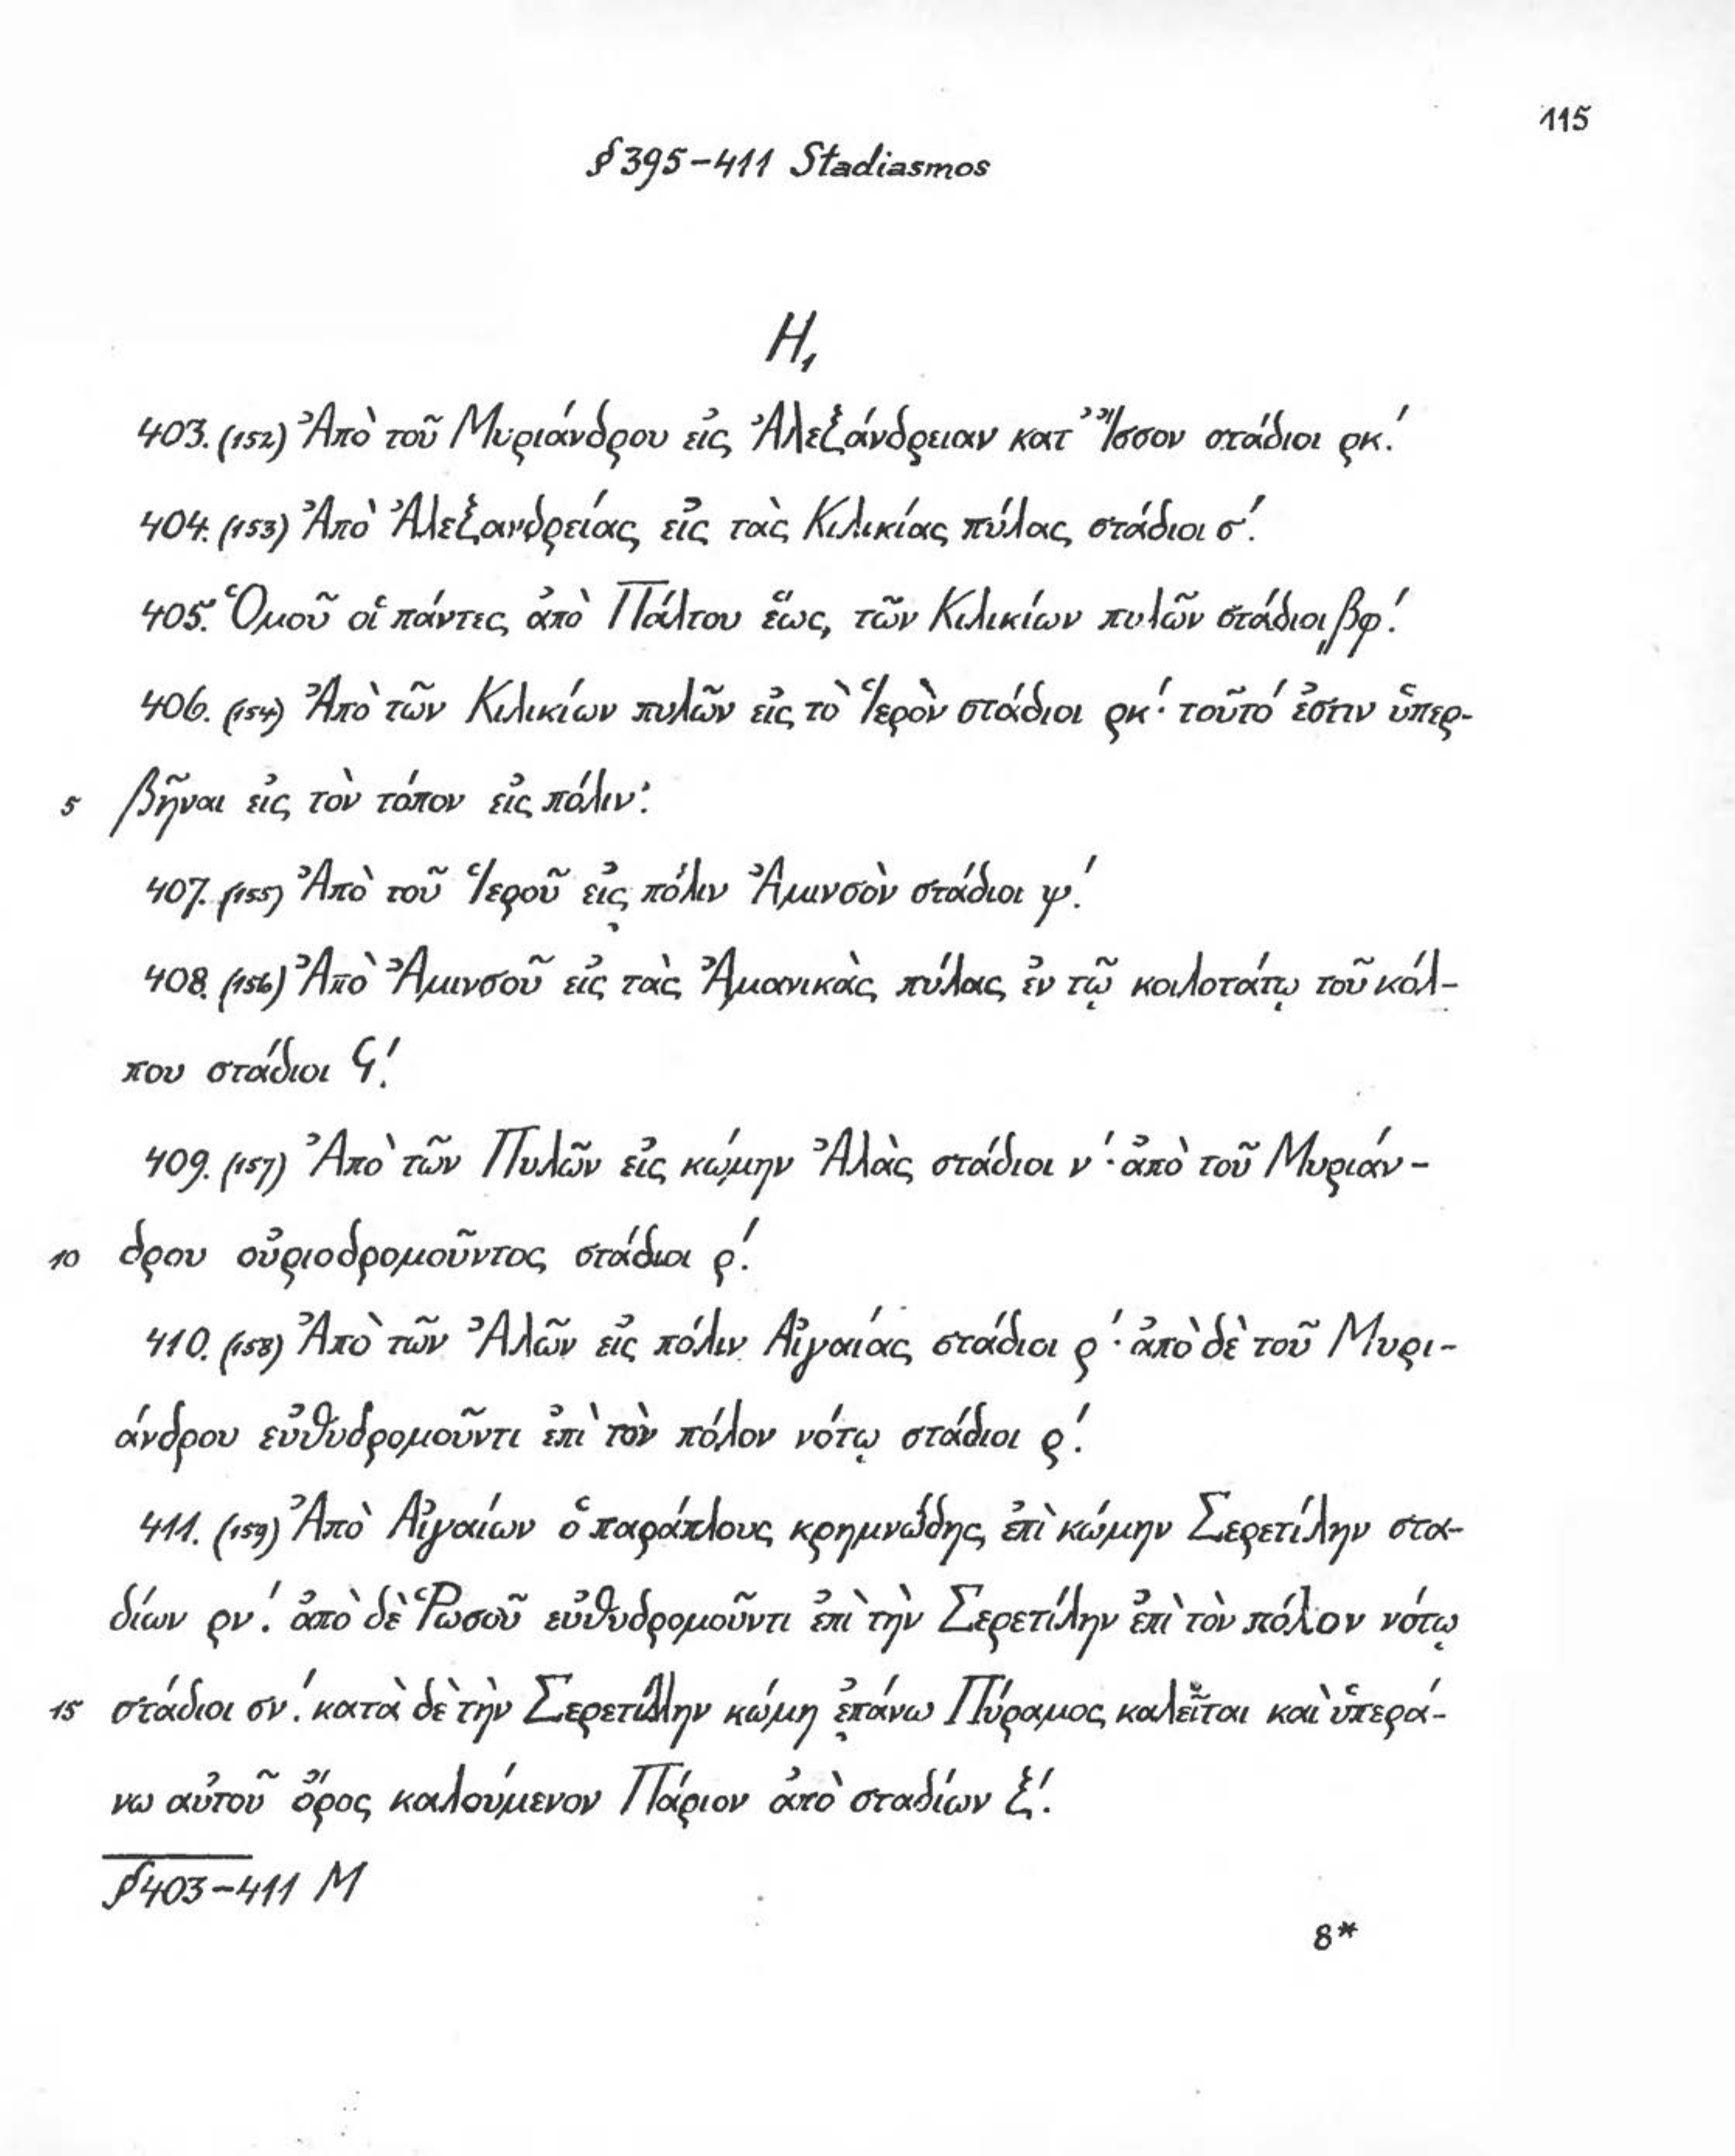 115
§ 395-411 Stadiasmos
H₁
403. (152) Ἀπὸ τοῦ Μυριάνδρου εἰς Ἀλεξάνδρειαν κατ' Ἴσσον στάδιοι ρκ'.
404. (153) Ἀπὸ Ἀλεξανδρείας εἰς τὰς Κιλικίας πύλας στάδιοι σ'.
405. Ὁμοῦ οἱ πάντες ἀπὸ Πάλτου ἕως τῶν Κιλικίων πυλῶν στάδιοι ͵βφ'.
406. (154) Ἀπὸ τῶν Κιλικίων πυλῶν εἰς τὸ Ἱερὸν στάδιοι ρκ'· τοῦτό ἐστιν ὑπερ-
5 βῆναι εἰς τὸν τόπον εἰς πόλιν.
407. (155) Ἀπὸ τοῦ Ἱεροῦ εἰς πόλιν Ἀμινσὸν στάδιοι ψ'.
408. (156) Ἀπὸ Ἀμινσοῦ εἰς τὰς Ἀμανικὰς πύλας ἐν τῷ κοιλοτάτῳ τοῦ κόλ-
που στάδιοι Ϟ'.
409. (157) Ἀπὸ τῶν Πυλῶν εἰς κώμην Ἀλὰς στάδιοι ν'· ἀπὸ τοῦ Μυριάν-
10 δρου οὐριοδρομοῦντος στάδιοι ρ'.
410. (158) Ἀπὸ τῶν Ἀλῶν εἰς πόλιν Αἰγαίας στάδιοι ρ'· ἀπὸ δὲ τοῦ Μυρι-
άνδρου εὐθυδρομοῦντι ἐπὶ τὸν πόλον νότῳ στάδιοι ρ'.
411. (159) Ἀπὸ Αἰγαίων ὁ παράπλους κρημνώδης ἐπὶ κώμην Σερετίλην στα-
δίων ρν'. ἀπὸ δὲ Ῥωσοῦ εὐθυδρομοῦντι ἐπὶ τὴν Σερετίλην ἐπὶ τὸν πόλον νότῳ
15 στάδιοι σν'. κατὰ δὲ τὴν Σερετίλην κώμη ἐπάνω Πύραμος καλεῖται καὶ ὑπερά-
νω αὐτοῦ ὄρος καλούμενον Πάριον ἀπὸ σταδίων ξ'.
§ 403-411 M
8*